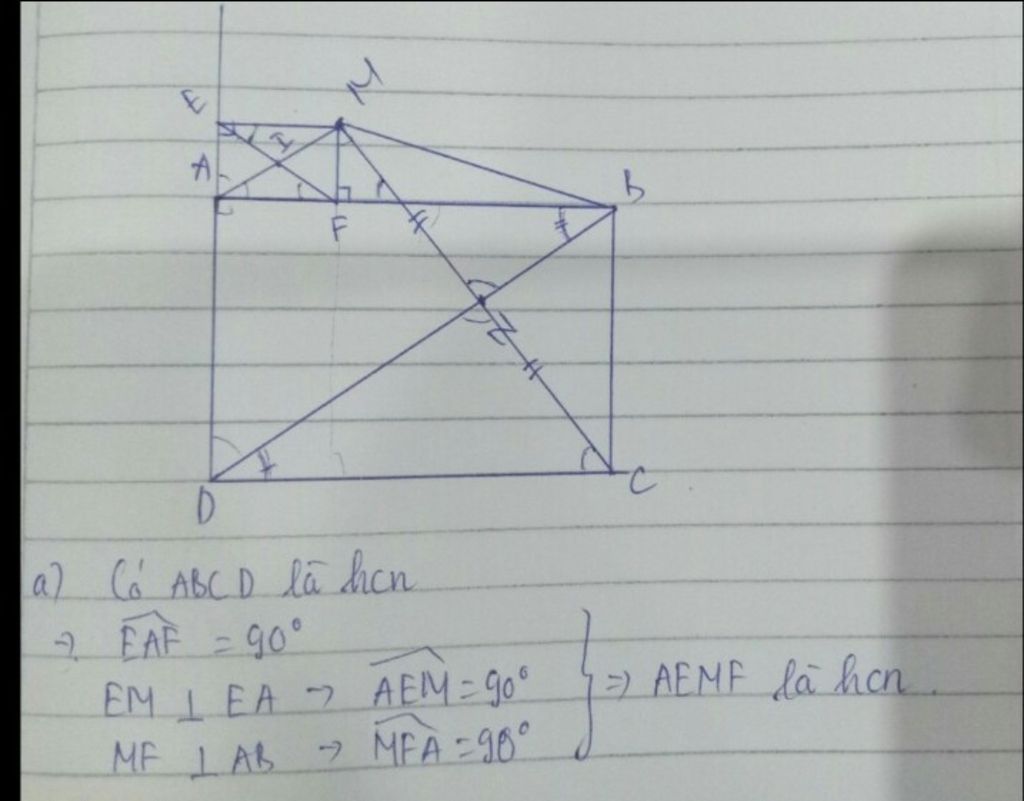 E
M
I
A
B
F
N
D
C
a) Có ABCD là hcn
→ EAF = 90°
EM ⊥ EA → AEM = 90°
MF ⊥ AB → MFA = 90°
} ⇒ AEMF là hcn.